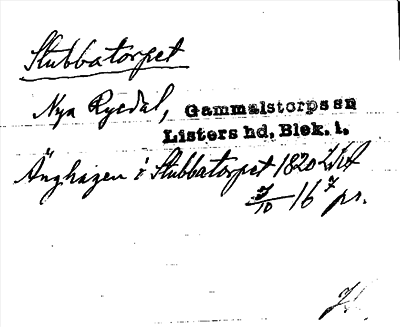 Stubbatorpet
Nya Rycdal, Gammalstorps sn
Listers hd, Blek. l.
Änghagen i Stubbatorpet 1820 LSA
7/10 16 7 pr.